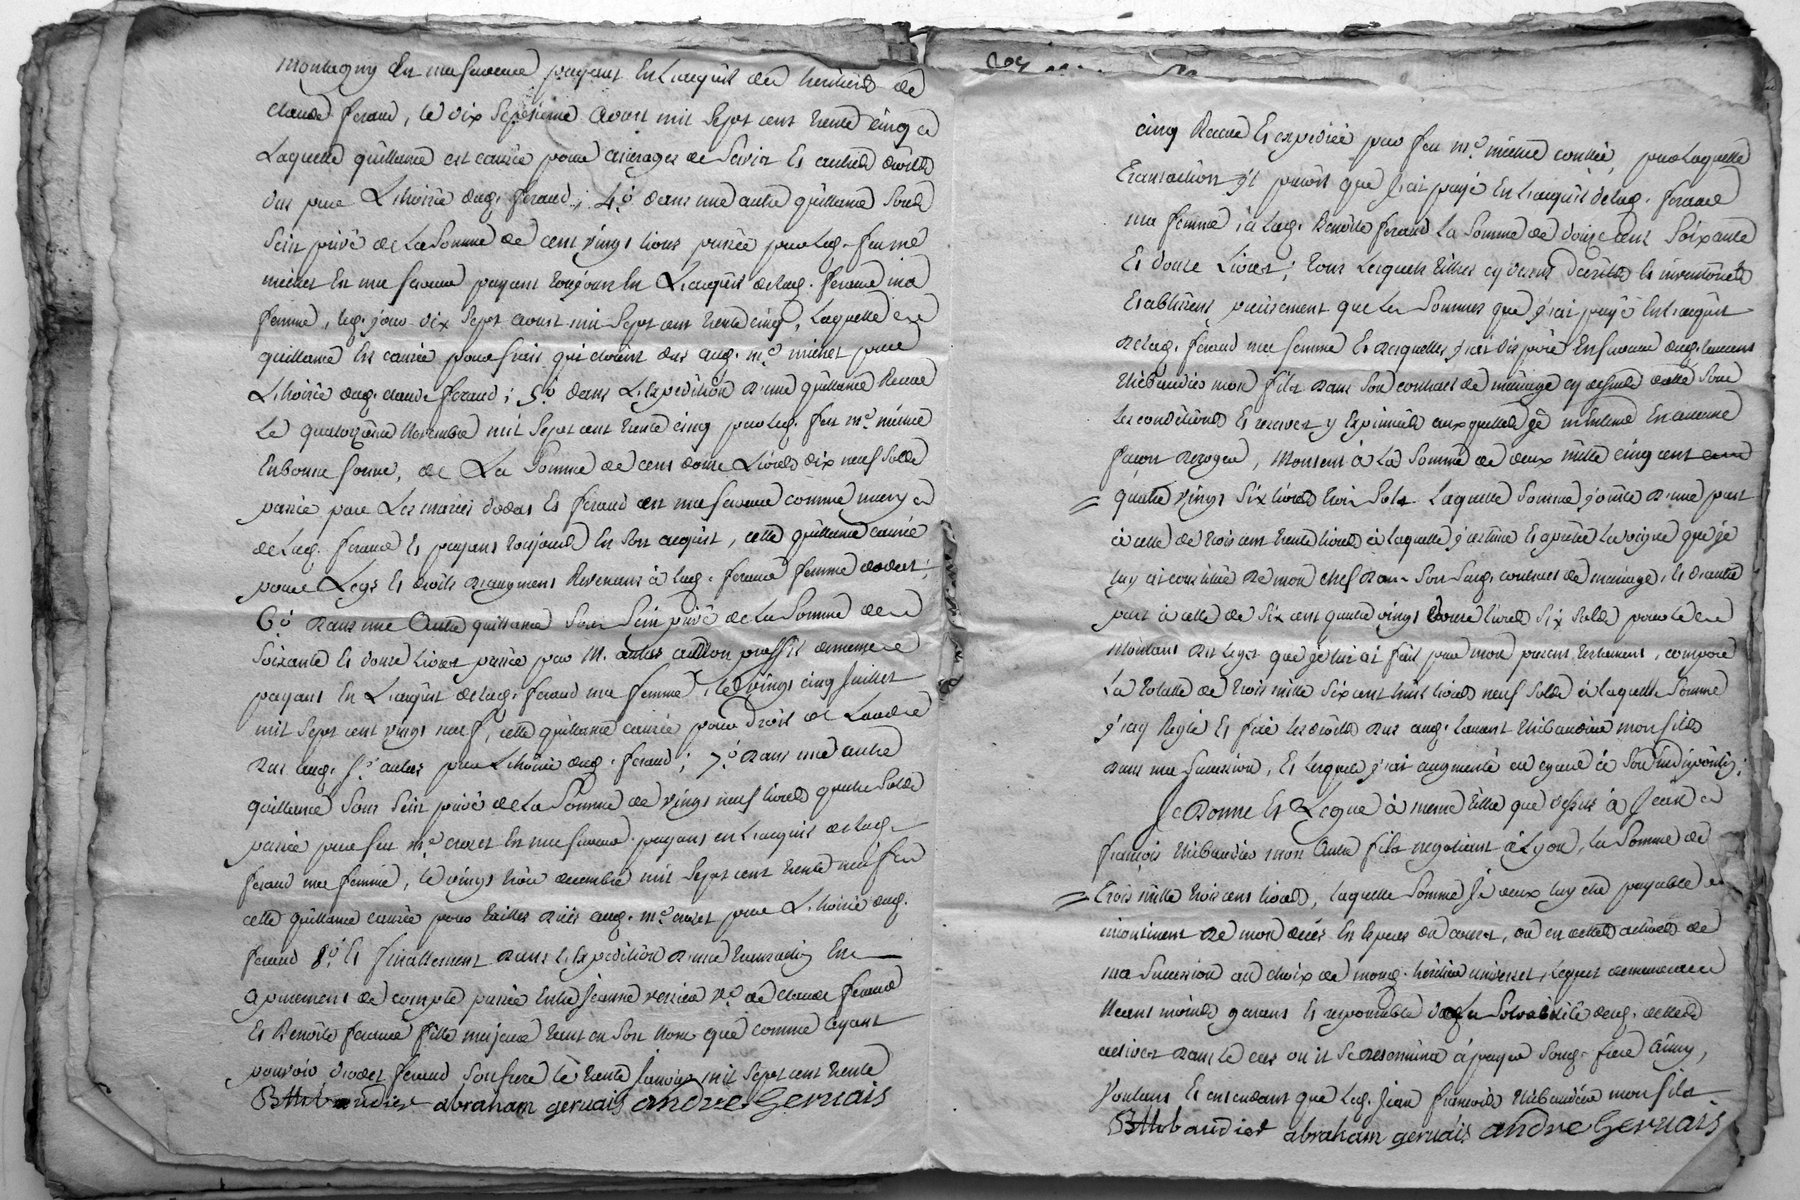 montagny En ma faveur payant En l'acquit des heritiers de
claude feraud, le dix septieme avost mil sept cent trente cinq
Laquelle quittance est causée pour arrerages de servis Et autres droits
dus par L'hoirie dud. feraud; 4.º dans une autre quittance sous
sein privé de La Somme de cent vingt livres passée par led. feu me
michet En ma faveur payant toujours En L'acquit de lad. feraud ma
femme, led. jour dix sept avost mil sept cent trente cinq, Laquelle
quittance Est causée pour frais qui etoint dus aud. me michet par
L'hoirie dud. claude feraud; 5.º dans L'Expedition d'une quittance Recue
Le quatorzieme Novembre mil sept cent trente cinq par led. feu me
En bonne forme, de La Somme de cent douze Livres dix neuf sols
passée par Les mariés dodat Et feraud en ma faveur comme mary
de Lad. feraud Et payant toujours En son acquit, cette quittance causée
pour Legs Et droits d'augment Revenant à lad. feraud femme dodat;
6.º dans une Autre quittance Sous Sein privé de La Somme de
soixante Et douze livres passée par M. aulas au mon proffit
payant En L'acquit de lad. feraud ma femme, le vingt cinq Juillet
mil sept cent vingt neuf, cette quittance causée pour droit de Laods
dus aud. Sr. aulas par L'hoirie dud. feraud; 7.º dans une autre
quittance sous sein privé de La Somme de vingt neuf livres quatre Sols
passée par feu me En ma faveur payant en L'acquit de lad.
feraud ma femme, le vingt trois decembre mil sept cent trente neuf
cette quittance causée pour tailles dües aud. me par L'hoirie dud.
feraud 8.º Et finallement dans L'Expedition d'une transaction En
apurement de compte passée Entre Jeanne ve. de claude feraud
Et Benoite feraud fille majeure tant en son Nom que comme ayant
pouvoir feraud son frere le trente Janvier mil sept cent trente
BThibaudier abraham gervais andre Gervais
cinq Recue Et expediée par feu me. par Laquelle
Transaction il paroit que J'ai payé En L'acquit de lad. feraud
ma femme, à lad. Benoite feraud La Somme de cent soixante
Et douze Livres; Tous Lesquels titres cy devant Et inventoriés
Etablissent que Les Sommes que j'ai payé En L'acquit
de lad. feraud ma femme Et desquelles j'ai disposé En faveur dud. laurent
thibaudier mon fils dans son contract de mariage cy dessus datté sous
Les conditions Et reserves y Exprimées auxquelles je n'entend En aucune
facon deroger, Montent à La Somme de deux mille cinq cent
quatre vingt six livres trois Sols Laquelle Somme jointe d'une part
à celle de trois cent trente livres à laquelle j'estime Et apretie La vigne que je
luy ai constitué de mon chef dans son sud. contract de mariage, Et d'autre
part à celle de six cent quatre vingt douze livres six sols pour le
montant des legs que je lui ai fait par mon present testament, compose
La totalle de trois mille six cent huit livres neuf sols à laquelle Somme
j'ay Reglé Et fixé Les droits dus aud. laurent thibaudier mon fils
dans ma Succession, Et lesquels j'ai augmenté eu egard à
Je Donne Et Legue à meme titre que dessus à Jean
françois thibaudier mon Autre fils negotiant à Lyon, la Somme de
trois mille trois cent livres, laquelle Somme Je veux luy etre payable
incontinent de mon decès En Especes de cours, ou en dettes actives de
ma Succession au choix de mond. heritier universel, lequel demeurera
Neant moins garant Et responsable de La solvabilité desd. dettes
actives dans le cas ou il se determine à payer sond. frere Ainsy,
Voulant Et entendant que Led. Jean françois thibaudier mon fils
BThibaudier abraham gervais andre Gervais